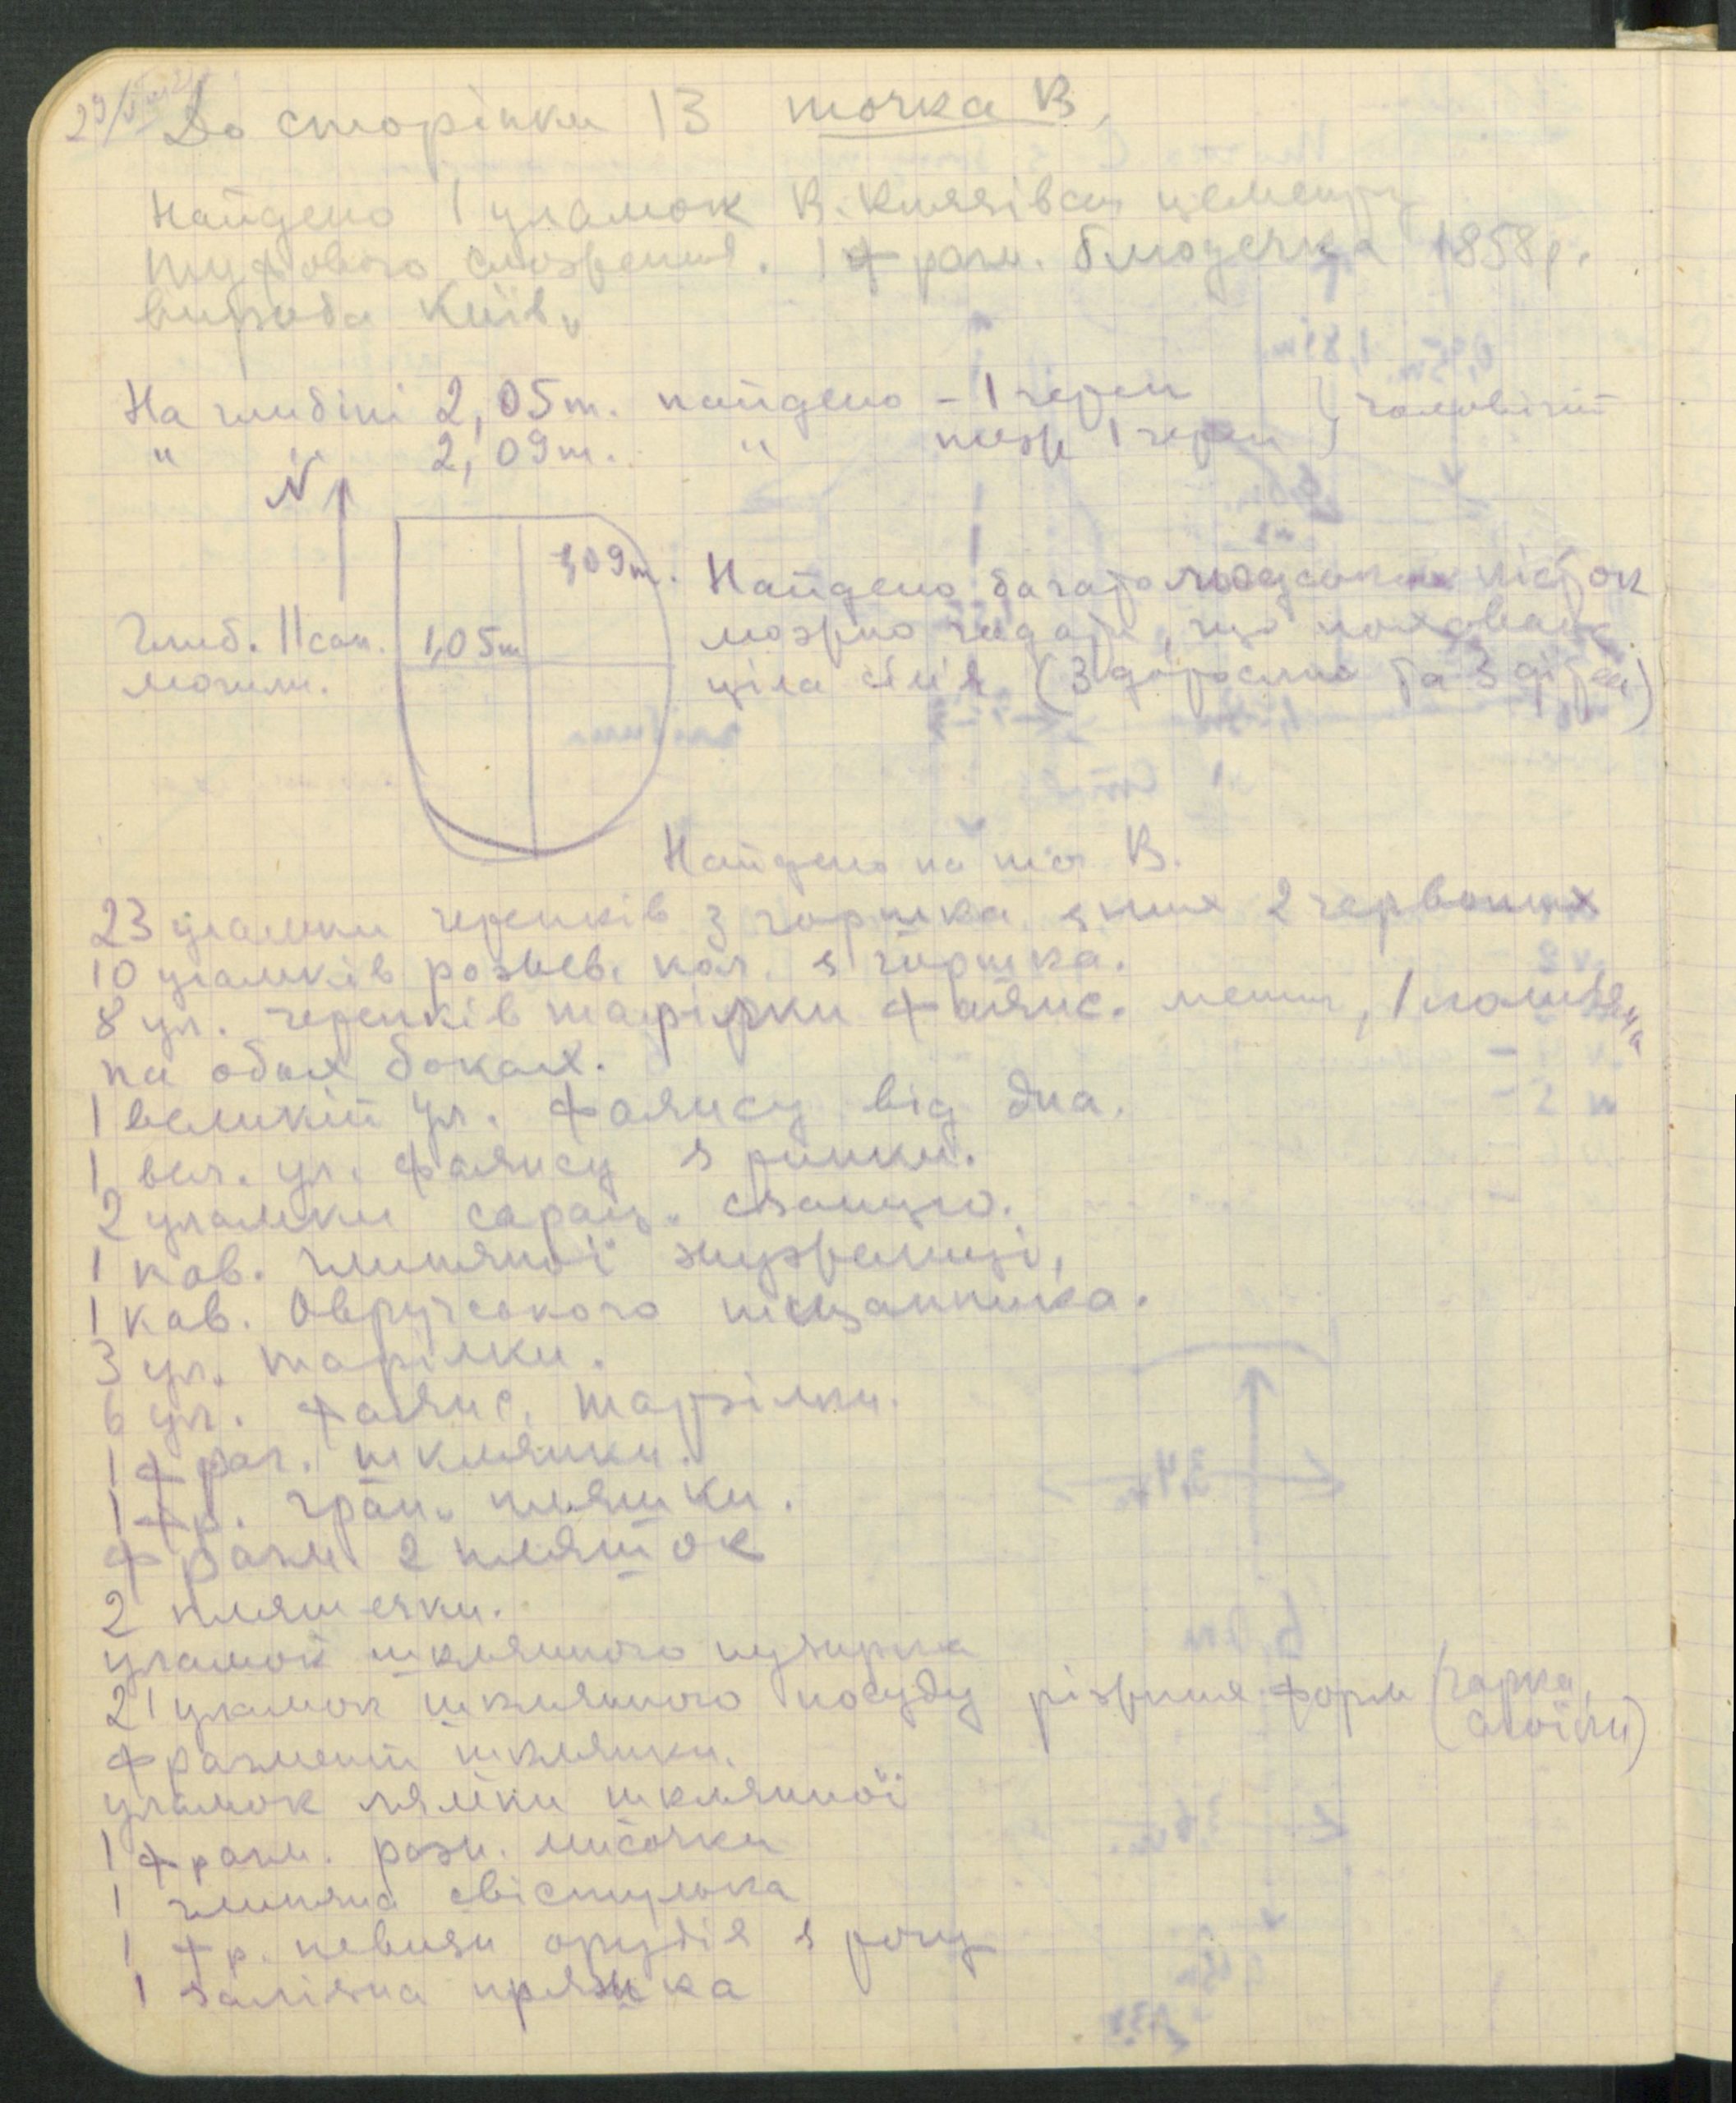 29/VIII
До сторінки 13 точка В,
Найдено 1 уламок В. Князівськ цементу
туфового
1 фрагм. блюдечка 1858 р.
вироба Київ.
На глибіні 2,05 m. найдено - 1 череп
" 2,09 m. " теж 1 череп } чоловічий
N
1,09 m.
1,05 m
Глиб. II сан.
могили.
Найдено багато людських кісток
можно гадати, що поховано
ціла сім'я (3 дорослих та 3 дітей)
Найдено на точ В.
23 уламки черепків з горшка, з них 2 червоних
10 уламків розмов. кол. з горшка.
8 ул. черепків тарілки фаянс.
на обох боках.
1 великий ул. фаянсу від дна.
1 вел. ул. фаянсу з ринки.
2 уламки
1 кав. глиняної жужелиці,
1 кав. Овруческого пісчанника.
3 ул. тарілки.
6 ул. фаянс. тарілки.
1 фраг. шклянки.
1 фр. гран. пляшки.
фрагм. 2 пляшок
2 пляшечки.
уламок шклянного пузирка
21 уламок шклянного посуду різних форм (чарка,
слоїки)
фрагмент шклянки.
уламок ляйки шклянної
1 фрагм. розм. мисочки
1 глиняна свістулька
1 фр. невизн орудія з рогу
1 залізна пряжка